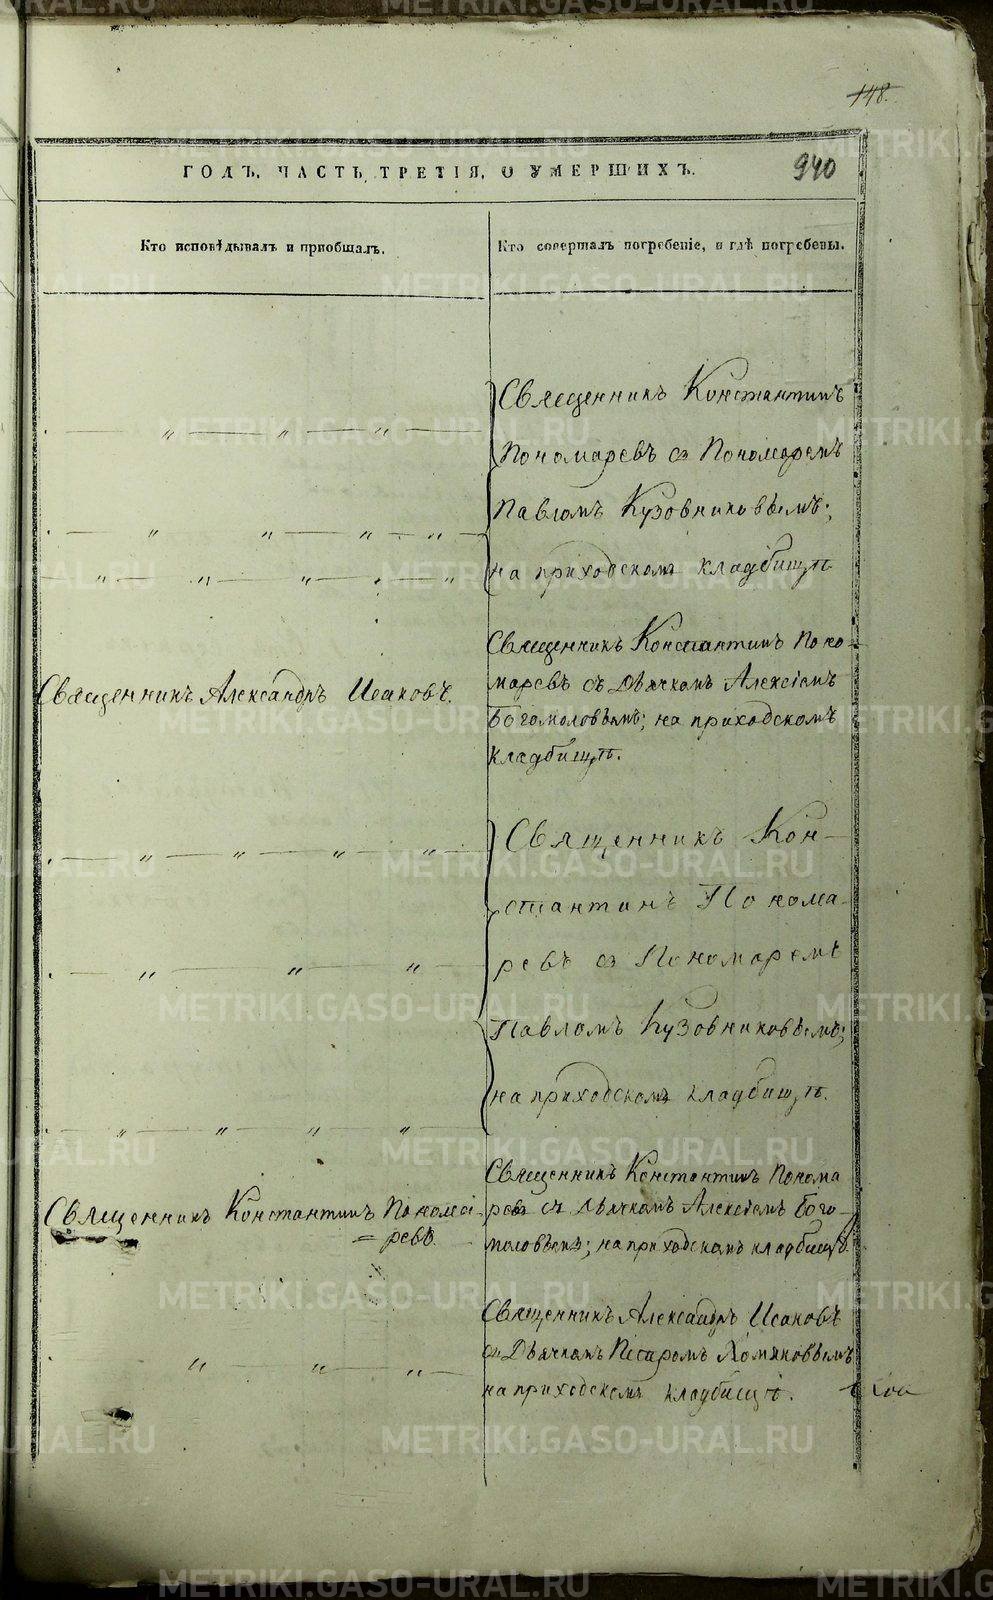 148.
ГОДЪ, ЧАСТЬ ТРЕТІЯ, О УМЕРШИХЪ.
940
Кто исповѣдывалъ и пріобщалъ.
Кто совершалъ погребеніе, и гдѣ погребены.
Священникъ Константинъ
Пономаревъ съ Пономаремъ
Павломъ Кузовниковымъ;
на приходскомъ кладбищѣ
Священникъ Александръ Исаковъ.
Священникъ Константинъ Поно-
маревъ съ Дьячкомъ Алексіемъ
Богомоловымъ; на приходскомъ
кладбищѣ.
Священникъ Кон-
стантинъ Понома-
ревъ съ Пономаремъ
Павломъ Кузовниковымъ;
на приходскомъ кладбищѣ.
Священникъ Константинъ Понома-
ревъ.
Священникъ Константинъ Понома
ревъ съ Дьячкомъ Алексіемъ Бого-
моловымъ; на приходскомъ кладбищѣ.
Священникъ Александръ Исаковъ
съ Дьячкомъ Петромъ Хомяковымъ
на приходскомъ кладбищѣ.
METRIKI.GASO-URAL.RU